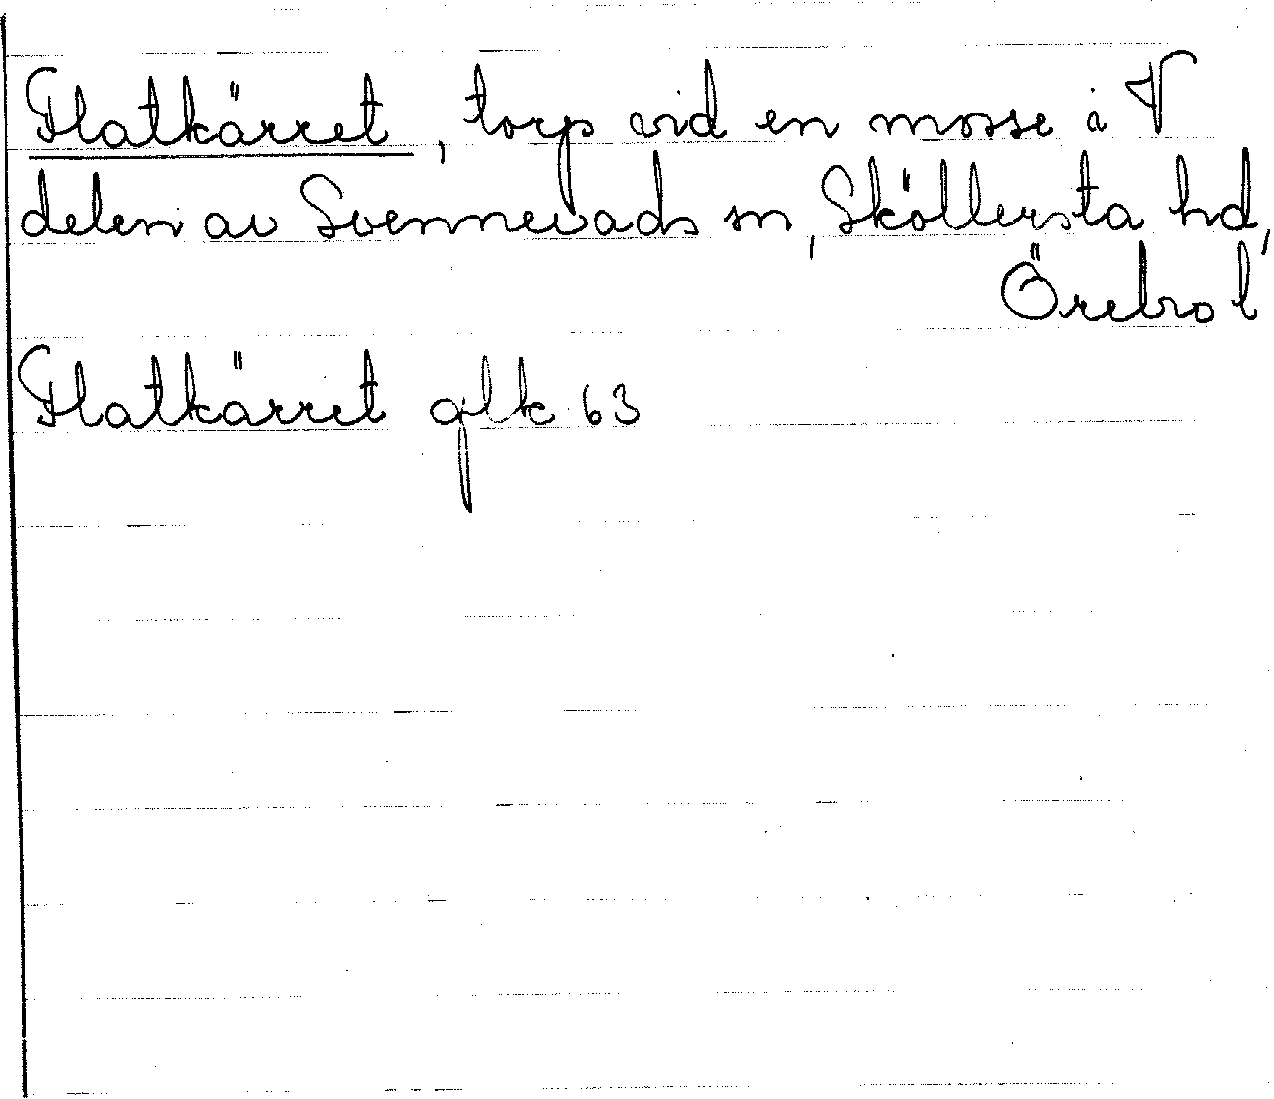 Flatkärret, torp vid en mosse i V
delen av Svennevads sn, Sköllersta hd,
Örebro l
Flatkärret glk 63